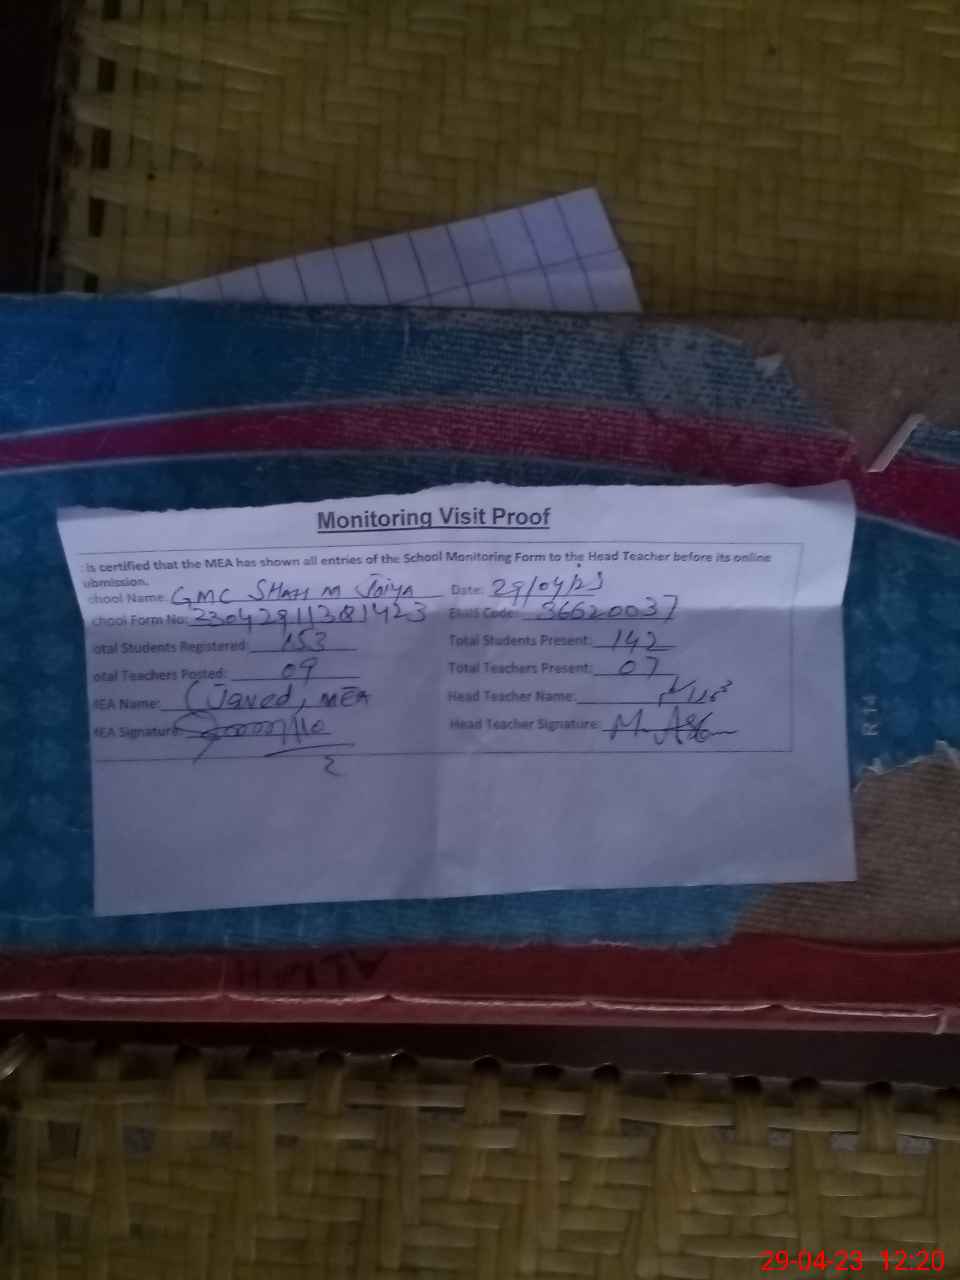 Monitoring Visit Proof
is certified that the MEA has shown all entries of the School Monitoring Form to the Head Teacher before its online
ubmission.
chool Name: GMC SHAH M Joiya Date: 29/04/23
chool Form No: 23042911381423 EMIS Code: 36620037
otal Students Registered: 153 Total Students Present: 142
otal Teachers Posted: 09 Total Teachers Present: 07
MEA Name: (Javed, MEA Head Teacher Name:
MEA Signature: Head Teacher Signature:
29-04-23 12:20